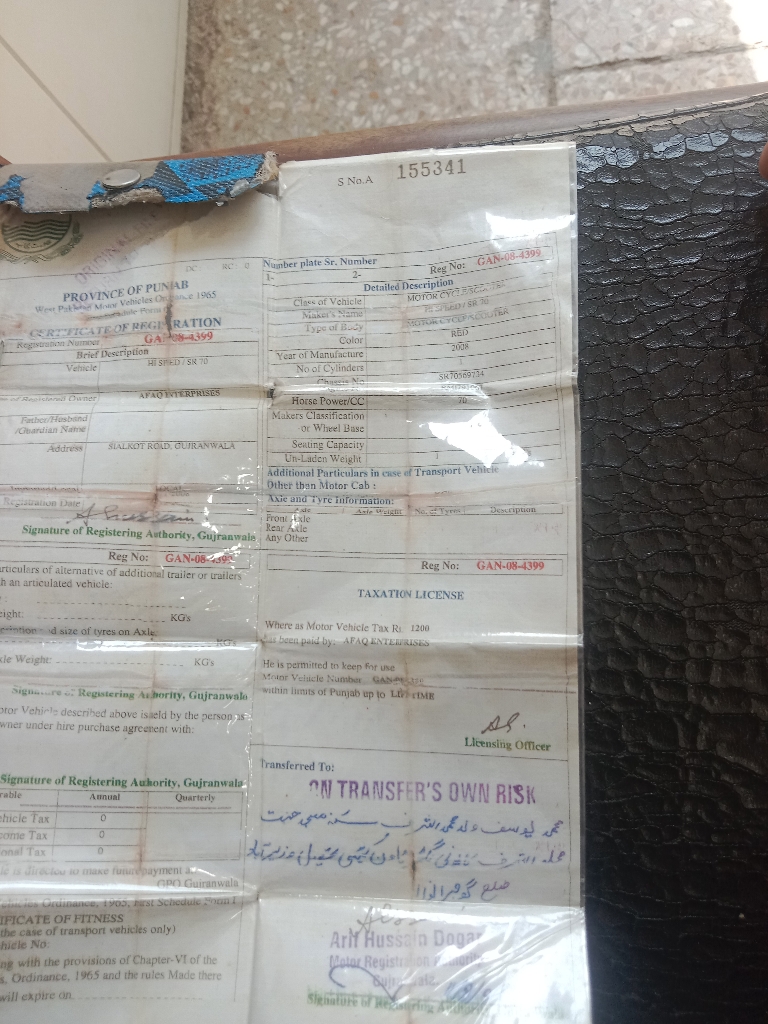 S No.A 155341
ORIGINAL
PROVINCE OF PUNJAB
West Pakistan Motor Vehicles Ordinance 1965
CERTIFICATE OF REGISTRATION
Registration Number GAN-08-4399
Brief Description
Vehicle HI SPEED / SR 70
of Registered Owner AFAQ ENTERPRISES
Father/Husband
/Guardian Name
Address SIALKOT ROAD, GUJRANWALA
Registration Date
Signature of Registering Authority, Gujranwala
Reg No: GAN-08-4399
articulars of alternative of additional trailer or trailers
h an articulated vehicle:
eight: KG's
and size of tyres on Axle.
KG's
xle Weight: KG's
Signature of Registering Authority, Gujranwala
otor Vehicle described above is held by the person as
wner under hire purchase agreement with:
Signature of Registering Authority, Gujranwala
rable Annual Quarterly
ehicle Tax 0
ome Tax 0
onal Tax 0
is directed to make future payment a
GPO Gujranwala
ehicles Ordinance, 1965, First Schedule Form
IFICATE OF FITNESS
the case of transport vehicles only)
hicle No:
ng with the provisions of Chapter-VI of the
s, Ordinance, 1965 and the rules Made there
will expire on.
Number plate Sr. Number
1- 2- Reg No: GAN-08-4399
Detailed Description
Class of Vehicle MOTOR CYCLE/SCOOTER
Maker's Name HI SPEED / SR 70
Type of Body MOTOR CYCLE/SCOOTER
Color RED
Year of Manufacture 2008
No of Cylinders
Chassis No SR70569734
Horse Power/CC 70
Makers Classification
or Wheel Base
Seating Capacity
Un-Laden Weight
Additional Particulars in case of Transport Vehicle
Other than Motor Cab :
Axie and Tyre Information:
Axle Axle Weight No. of Tyres Description
Front Axle
Rear Axle
Any Other
Reg No: GAN-08-4399
TAXATION LICENSE
Where as Motor Vehicle Tax Rs. 1200
has been paid by: AFAQ ENTERPRISES
He is permitted to keep for use
Motor Vehicle Number
within limits of Punjab up to LIFE TIME
Licensing Officer
Transferred To:
ON TRANSFER'S OWN RISK
محمد یوسف ولد محمد اشرف
ضلع گوجرانوالہ
Arif Hussain Dogar
Motor Registration Authority
Gujranwala
Signature of Registering Authority